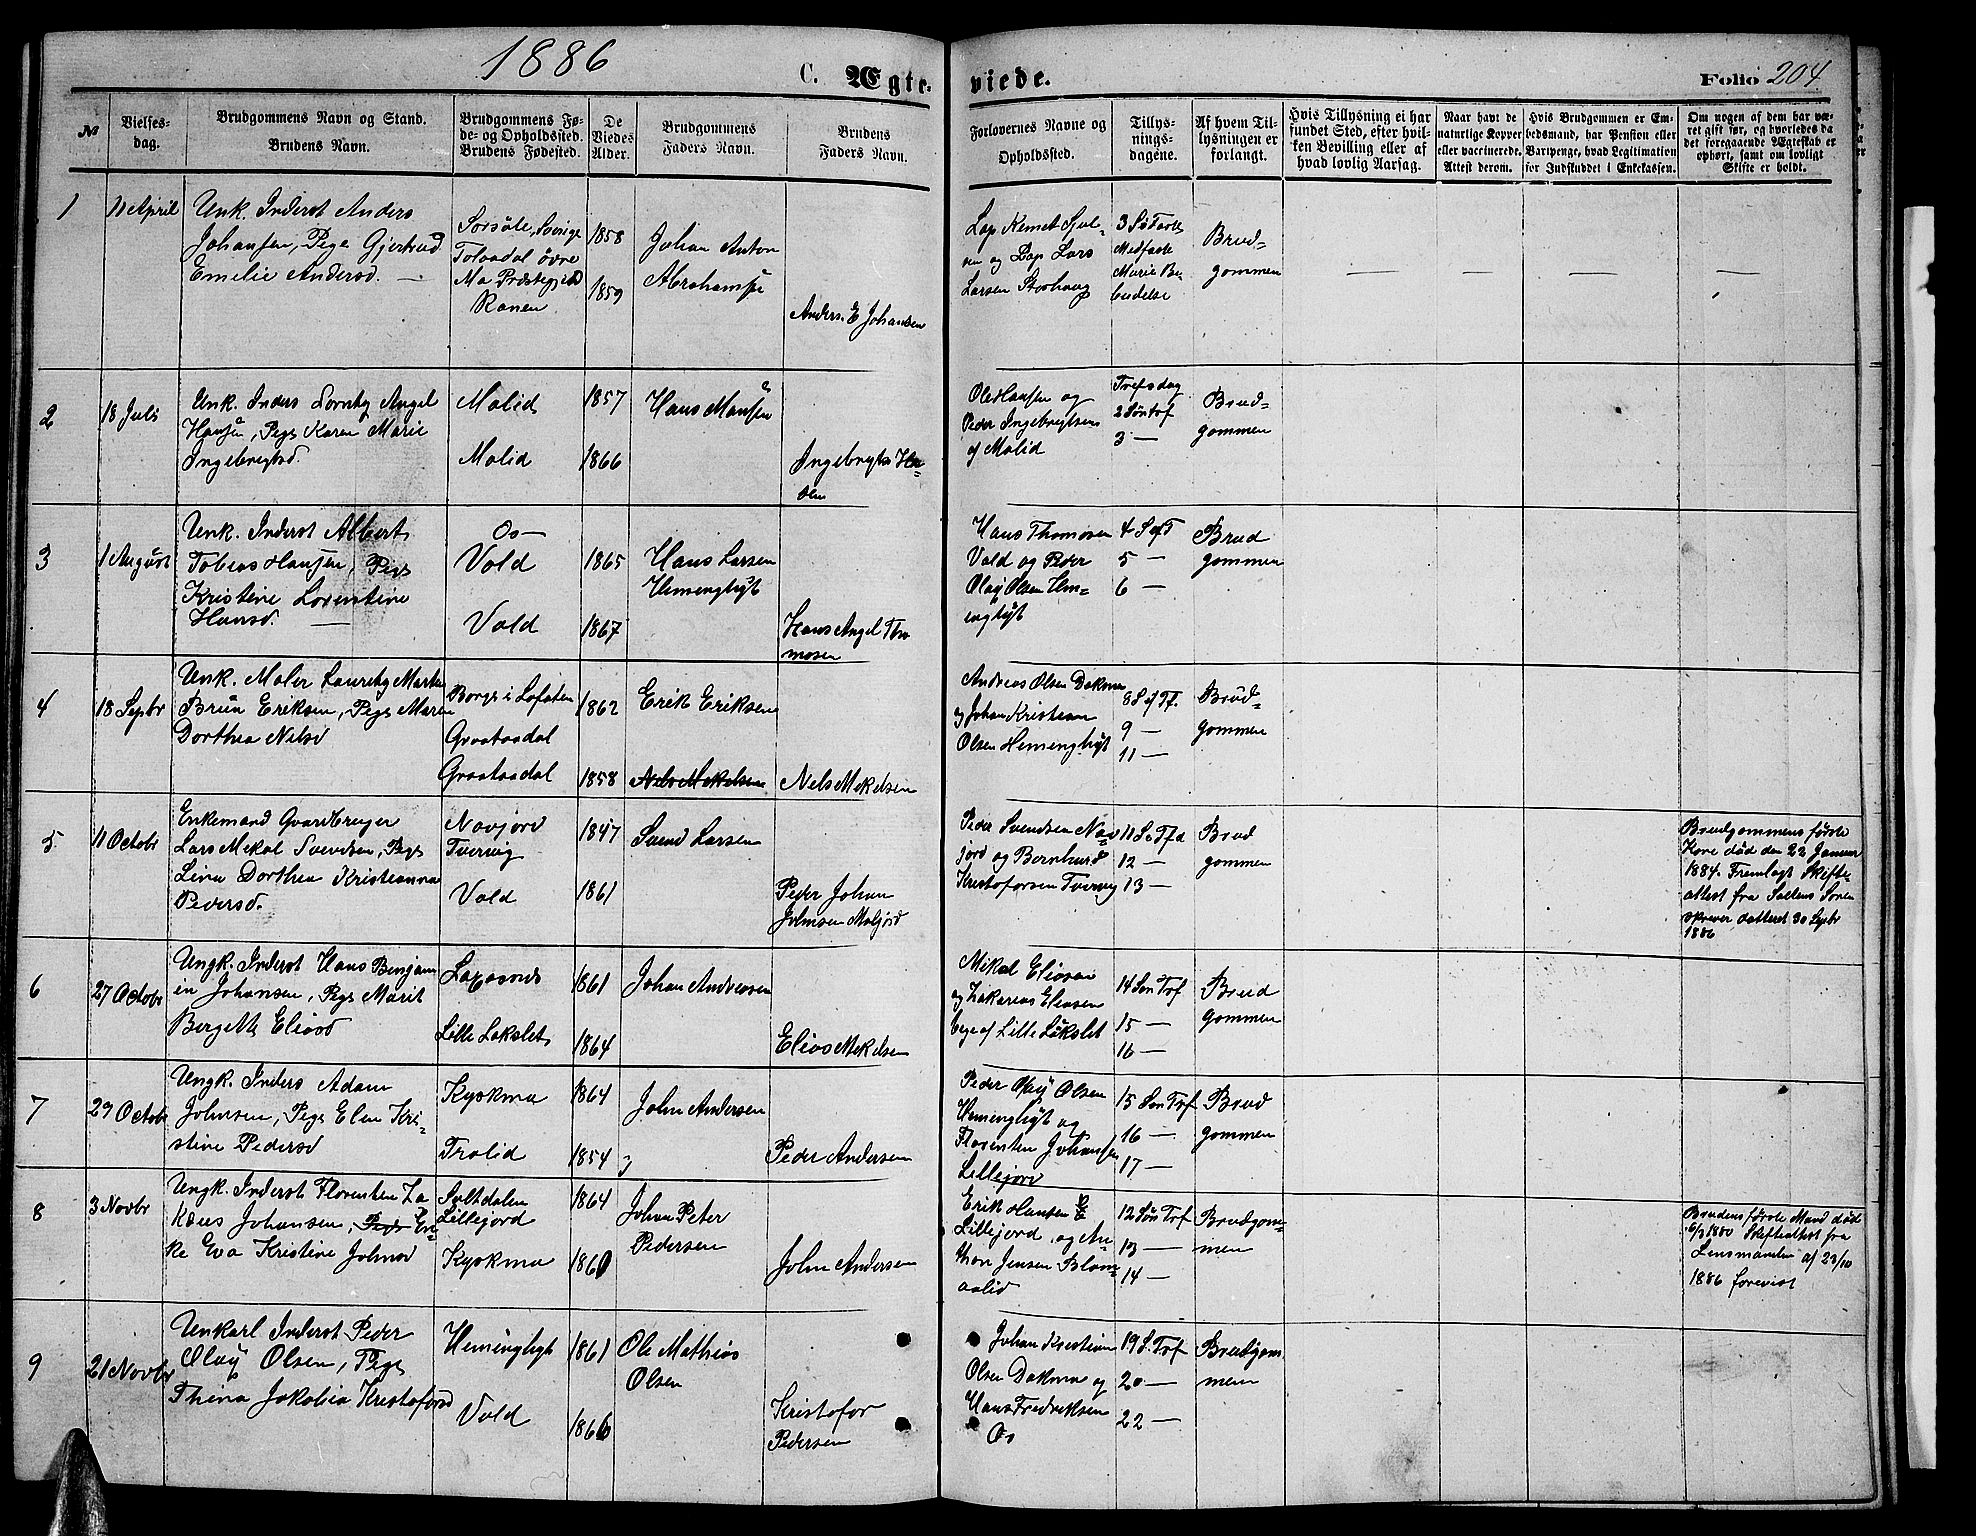 1886
C. Ægte-
viede.
Folio 204
№
Vielses-
dag.
Brudgommens Navn og Stand.
Brudens Navn.
Brudgommens Fø-
de- og Opholdssted.
Brudens Fødested.
De
Viedes
Alder.
Brudgommens
Faders Navn.
Brudens
Faders Navn.
Forlovernes Navne og
Opholdssted.
Tillys-
nings-
dagene.
Af hvem Til-
lysningen er
forlangt.
Hvis Tillysning ei har
fundet Sted, efter hvil-
ken Bevilling eller af
hvad lovlig Aarsag.
Naar havt de
naturlige Kopper
eller vaccinerede.
Attest derom.
Hvis Brudgommen er Em-
bedsmand, har Pension eller
Vartpenge, hvad Legitimation
for Indskuddet i Enkekassen.
Om nogen af dem har væ-
ret gift før, og hvorledes da
det foregaaende Ægteskab er
ophørt, samt om lovligt
Skifte er holdt.
1
11 April
Unk. Inderst Anders
Johansen, Pige Gjertrud
Emelie Andersd. —
Sorsele, Sverige
Tolaadal övre
Mo Præstegjeld
Ranen
1858
1859
Johan Anton
Abrahams
Anders. E Johansen
Lap Kemet Sjul-
sen og Lap Lars
Larsen Storhaug
3 S i Faste
Midfaste
Marie Be-
budelse
Brud-
gommen
— — — —
2
18 Juli
Unk. Inders Angel
Hansen, Pige Karen Marie
Ingebregtsd.
Molid
Molid
1857
1866
Hans Hansen
Ingebregt Ha-
Ole Hansen og
Peder Ingebregtsen
af Molid
Trefsdag
2 Søn Trf
3 —
Brud-
gommen
3
1 August
Unk. Inderst Albert
Tobias Hansen, Pige
Kristine Lorentine
Hansd. —
Os—
Vold
Vold
1865
1867
Hans Larsen
Hemenghyt
Hans Angel Tho
mosen
Hans Thomosen
Vold og Peder
Olaÿ Olsen Hem-
enghyt
4 S ef T
5 —
6 —
Brud
gommen
4
18 Sepbr
Unk. Maler Lauritz Martin
Brun Eriksen, Pige Maren
Dorthea Nilsd
Borge i Lofoten
Graataadal
Graataadal
1862
1858
Erik Eriksen
Nels Mekelsen
Nels Mekelsen
Andreas Olsen Dokmo
og Johan Kristian
Olsen Hemenghyt
8 S ef Tf.
9 —
11 —
Brud-
gommen
5
11 Octobr
Enkemand Gaardbruger
Lars Mekal Svendsen, Pige
Lina Dorthea Kristianna
Pedersd.
Novjord
Tvervig
Vold
1847
1861
Svend Larsen
Peder Johan
Johnsen Moljord
Peder Svendsen Nov
jord og Bernhard
Kristofersen Tvervig
11 S e Tfd
12 —
13 —
Brud
gommen
Brudgommens første
Kone død den 22 Januar
1884. Fremlagt Skifte
attest fra Saltens Soren
skriver datteret 30 Sepbr
1886
6
27 Octobr
Ungk. Inderst Hans Benjam
en Johansen, Pige Marit
Bergette Eliasd
Lille Lakslet
1861
1864
Johan Andreasen
Elias Mekelsen
Mikal Eliasen
og Zakarias Eliasen
bege af Lille Lakslet
14 Søn Trf
15 —
16 —
Brud
gommen
7
29 Octobr
Ungk. Inders Adam
Johnsen, Pige Elen Kri-
stine Pedersd
Kjokmo
Trolid
1864
1854
John Andersen
Peder Andersen
Peder Olaÿ Olsen
Hemenghyt og
Florenten Johansen
Lillejord
15 Søn Trf
16 —
17 —
Brud
gommen
8
3 Novbr
Ungk. Inderst Florenten Za
kæus Johansen, Pige En-
ke Eva Kristine Johnsd
Saltdalen
Lillejord
Kjokmo
1864
1860
Johan Peter
Pedersen
John Andersen
Erik Hansen
Lillejord, og An-
thon Jensen Blom-
aalid
12 Søn Trf
13 —
14 —
Brudgom-
men
Brudens første Mand død
6/3 1880 Skifteattest fra
Lensmanden af 23/10
1886 forevist
9
21 Novbr
Unkarl Inderst Peder
Olaÿ Olsen, Pige
Thina Jakobia Kristofersd
Hemenghyt
Vold
1861
1866
Ole Mathias
Olsen
Kristofor
Pedersen
Johan Kristian
Olsen Dokmo og
Hans Fredriksen
Os
19 S. Trf
20 —
22 —
Brudgom
men